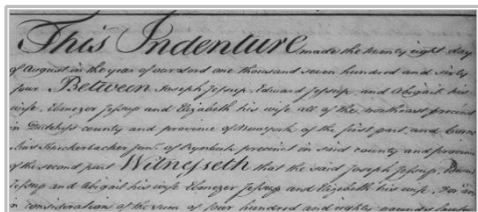 This Indenture made the twenty eight day
of August in the year of our Lord one thousand seven hundred and sixty
four Between Joseph Jessup Edward Jessup, and Abigail his
wife, Ebenezer Jessup and Elizabeth his wife all of the northeast precinct
in Dutchess county and province of Newyork of the first part and
Knickerbacker Junr. of precinct in said county and province
of the second part Witnesseth that the said Joseph Jessup,
Jessup and Abigail his wife Ebenezer Jessup and Elizabeth his wife. For
in consideration of the sum of four hundred and eighty pounds